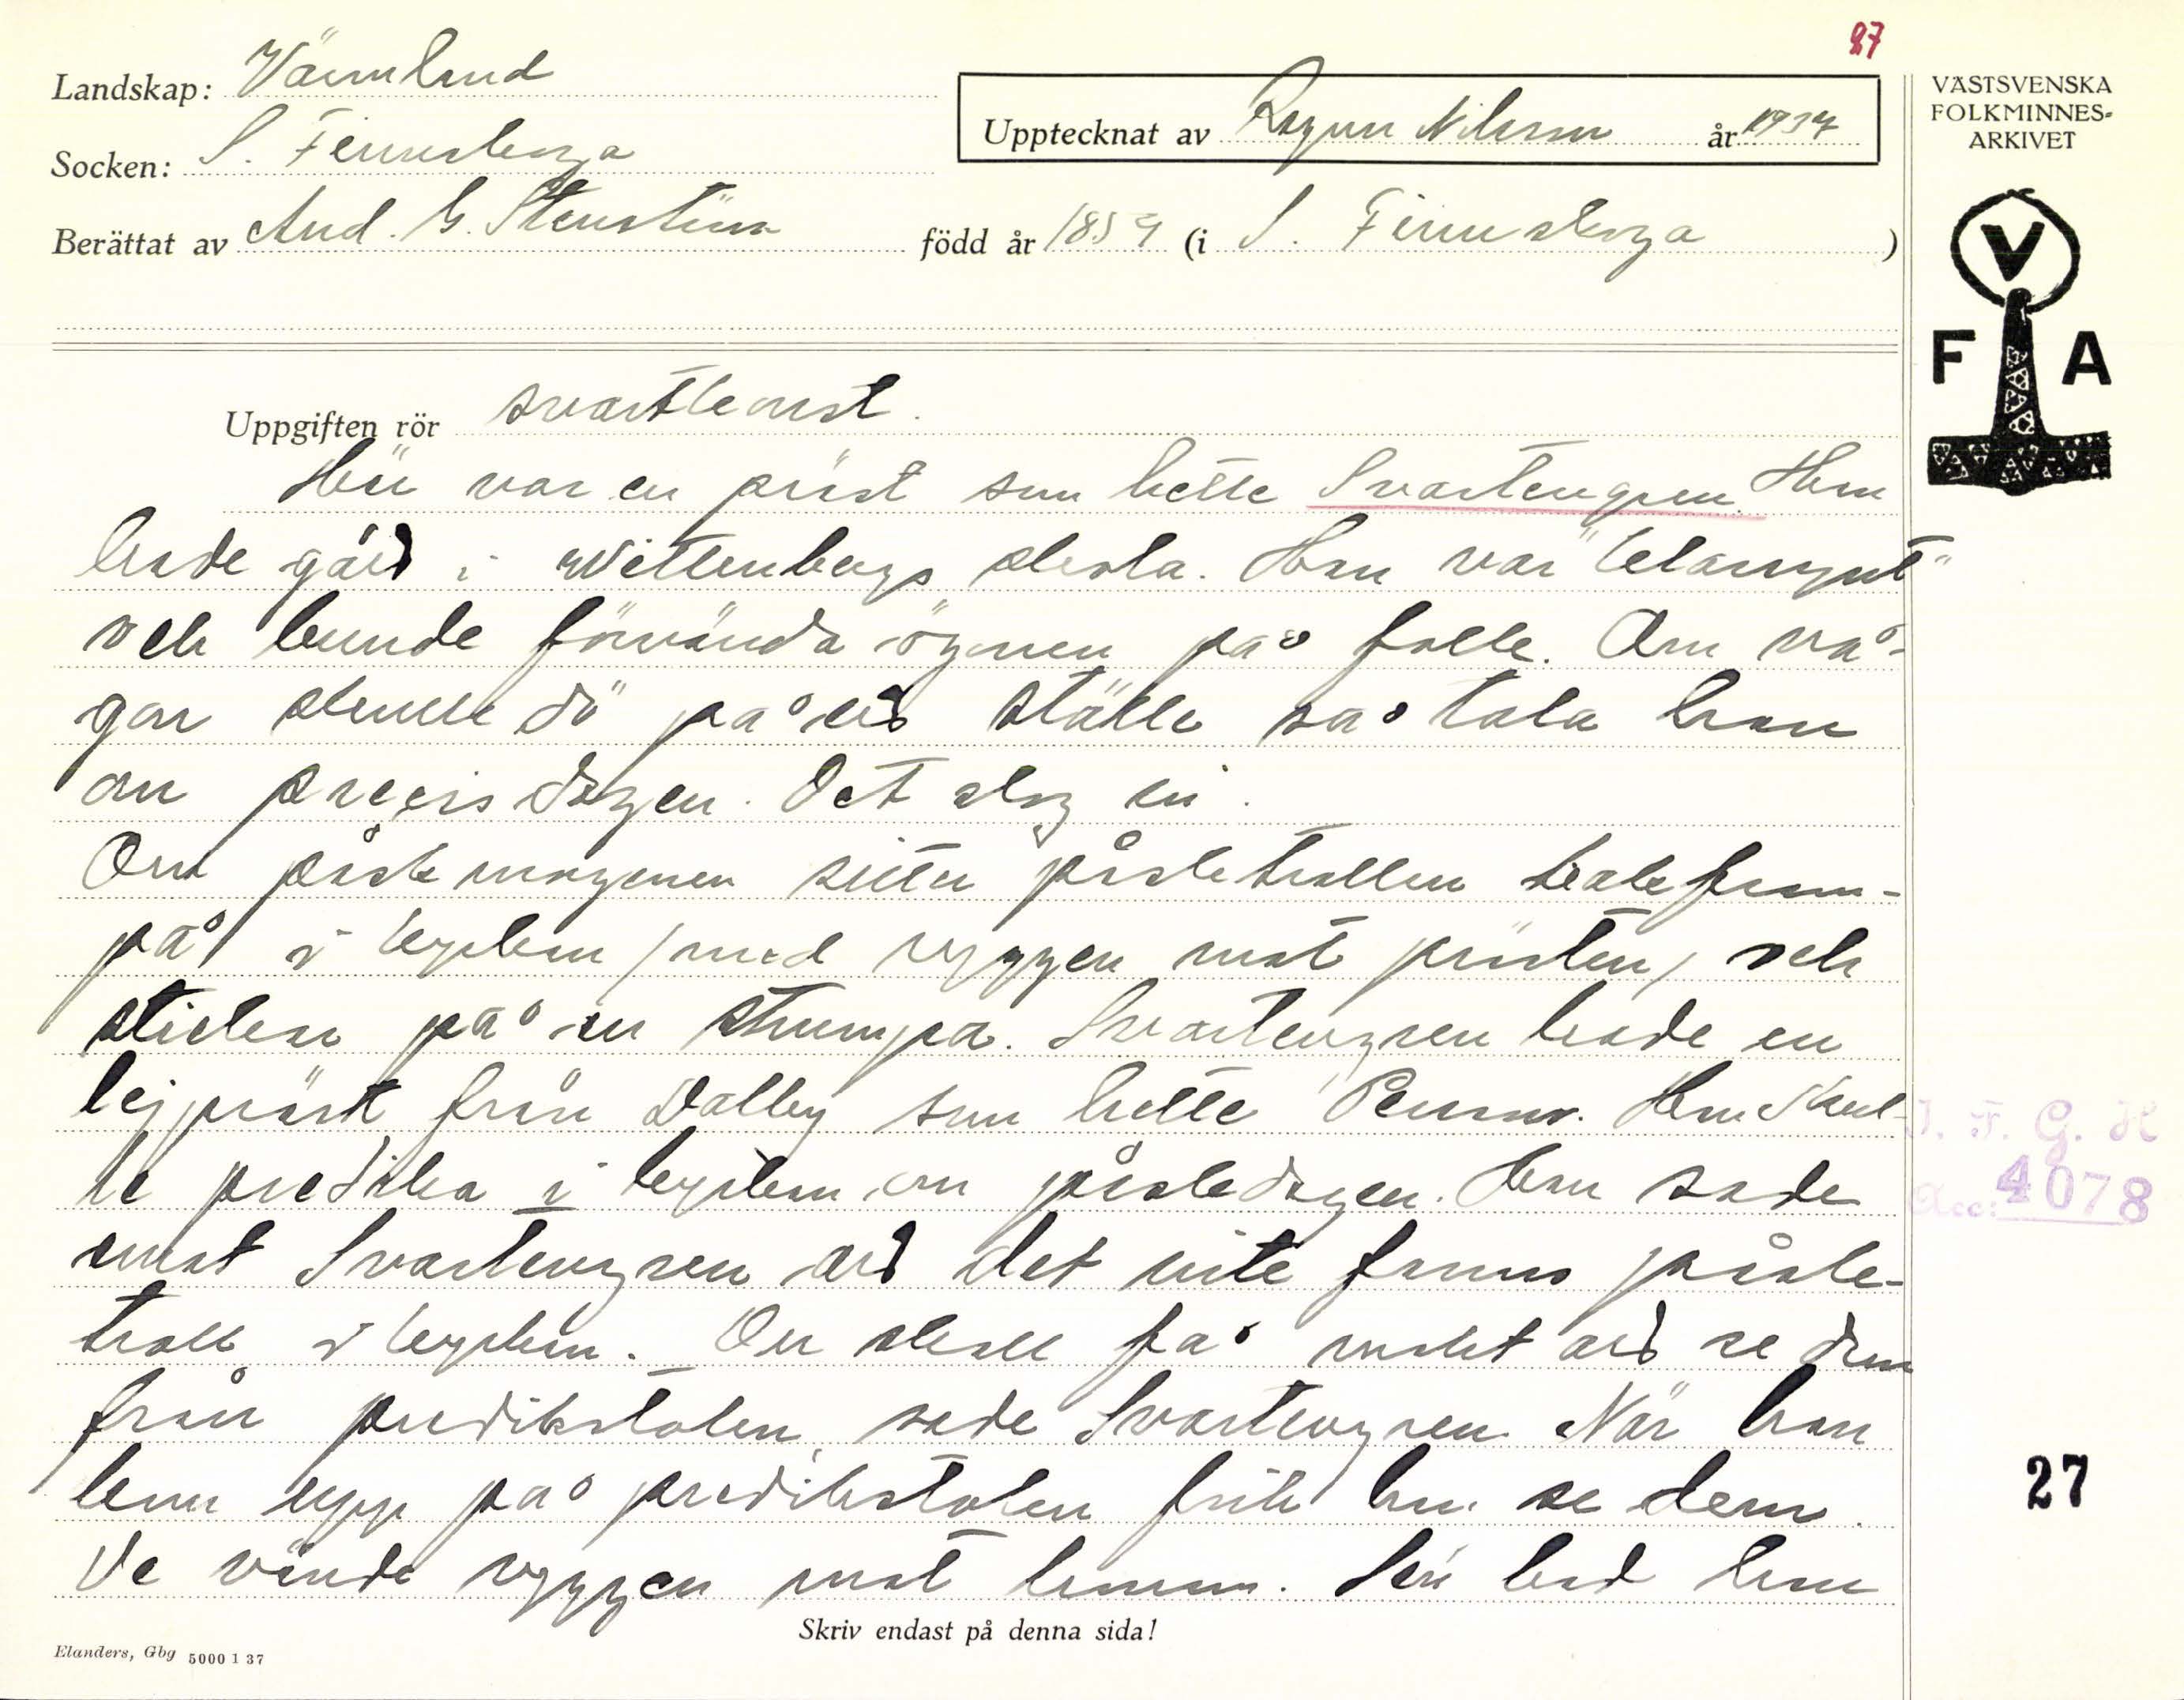 27
Landskap: Värmland
Socken: S. Finnskoga
Berättat av And. G. Stenström född år 1859 (i S. Finnskoga)
Upptecknat av Ragnar Nilsson år 1937
VÄSTSVENSKA
FOLKMINNES-
ARKIVET
V
F A
Uppgiften rör svartkonst.
Här var en präst som hette Svartengren. Han
hade gått i Wittenbergs skola. Han var "klarsynt"
och kunde förvända ögonen på folk. Om nå-
gon skulle dö på ett ställe så tala han
om precis dagen. Det slog in.
Om påskmorgonen sitter påsktrollen bakfram-
på i kyrkan /med ryggen mot prästen/ och
stickar på en strumpa. Svartengren hade en
lejpräst från Dalby som hette Penno. Han skul-
le predika i kyrkan om påskdagen. Han sade
emot Svartengren att det inte fanns påsk-
troll i kyrkan. Du skall få makt att se dem
från predikstolen, sade Svartengren. När han
kom upp på predikstolen fick han se dem.
De vände ryggen mot honom. Sen bad han
J. F. G. H
Acc: 4078
27
Skriv endast på denna sida!
Elanders, Gbg 5000 1 37